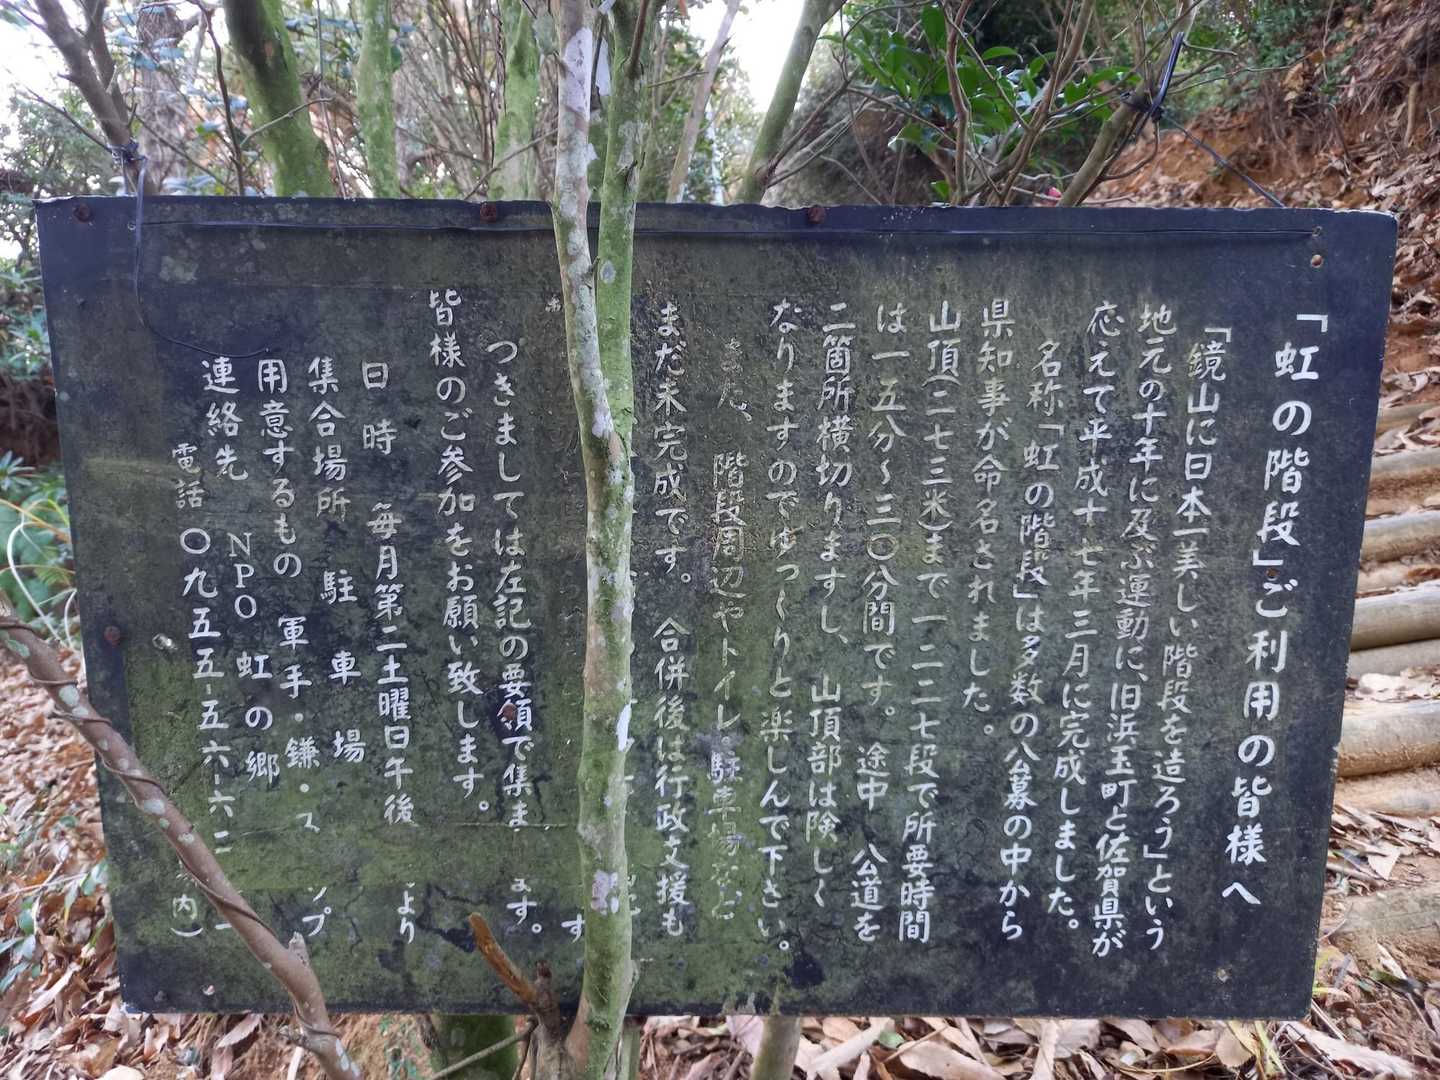 「虹の階段」ご利用の皆様へ
「鏡山に日本一美しい階段を造ろう」という
地元の十年に及ぶ運動に、旧浜玉町と佐賀県が
応えて平成十七年三月に完成しました。
名称「虹の階段」は多数の公募の中から
県知事が命名されました。
山頂(二七三米)まで一二二七段で所要時間
は一五分～三〇分間です。途中 公道を
二箇所横切りますし、山頂部は険しく
なりますのでゆっくりと楽しんで下さい。
また、階段周辺やトイレ駐車場など
まだ未完成です。合併後は行政支援も
す
つきましては左記の要領で集ま ます。
皆様のご参加をお願い致します。
日時 毎月第二土曜日午後 より
集合場所 駐車場
用意するもの 軍手・鎌・ス ップ
連絡先 NPO 虹の郷
電話 〇九五五-五六-六二 一 内)